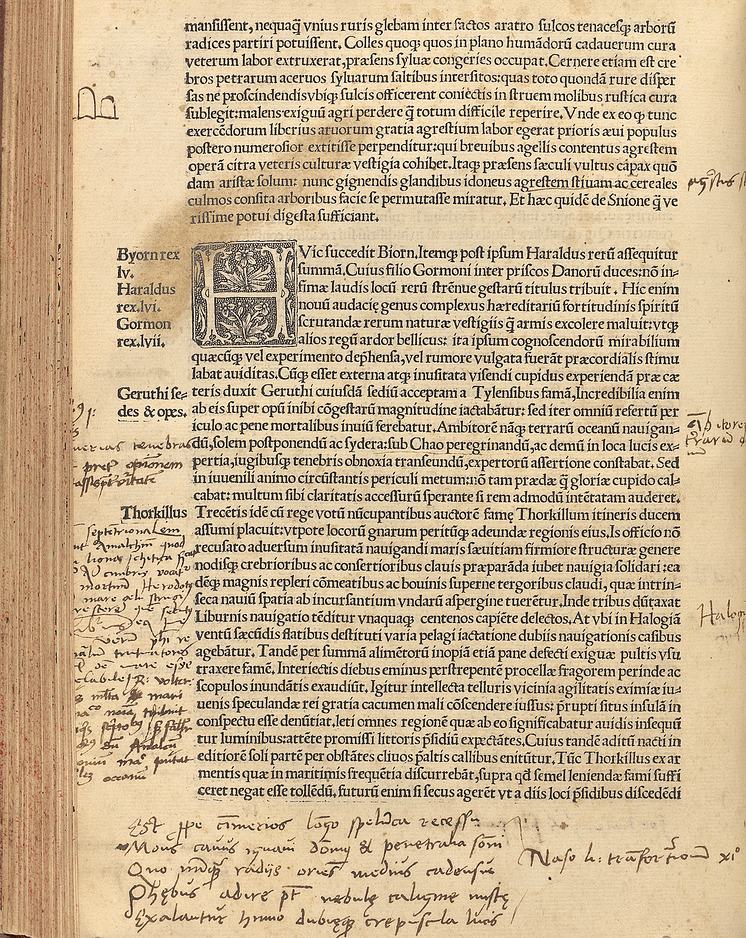 mansissent, nequaq̃ vnius ruris glebam inter sactos aratro sulcos tenacesq; arborũ
radices partiri potuissent. Colles quoq; quos in plano humãdorũ cadauerum cura
veterum labor extruxerat, præsens syluæ congeries occupat. Cernere etiam est cre
bros petrarum aceruos syluarum saltibus intersitos: quas toto quondã rure disper
sas ne proscindendis vbiq; sulcis officerent coniectis in struem molibus rustica cura
sublegit: malens exiguũ agri perdere q̃ totum difficile reperire. Vnde ex eo q; tunc
exercẽdorum liberius aruorum gratia agrestium labor egerat prioris æui populus
postero numerosior extitisse perpenditur: qui breuibus agellis contentus agrestem
operã citra veteris culturæ vestigia cohibet. Itaq; præsens sæculi vultus capax quõ
dam aristæ solum: nunc gignendis glandibus idoneus agrestem stiuam ac cereales
culmos consita arboribus facie se permutasse miratur. Et hæc quidẽ de Snione q̃ ve
rissime potui digesta sufficiant.
Byorn rex
lv.
Haraldus
rex. lvi.
Gormon
rex. lvii.
HVic succedit Biorn. Itemq; post ipsum Haraldus rerũ assequitur
summã. Cuius filio Gormoni inter priscos Danorũ duces: nõ in-
fimæ laudis locũ rerũ strẽnue gestarũ titulus tribuit. Hic enim
nouũ audacię genus complexus hæreditariũ fortitudinis spiritũ
scrutandæ rerum naturæ vestigiis q̃ armis excolere maluit: vtq;
alios regũ ardor bellicus: ita ipsum cognoscendorũ mirabilium
quæcũq; vel experimento dep̃hensa, vel rumore vulgata fuerãt præcordialis stimu
labat auiditas. Cũq; esset externa atq; inusitata visendi cupidus experiendã præ cæ
Geruthi se-
des & opes.
teris duxit Geruthi cuiusdã sediũ acceptam a Tylensibus famã. Incredibilia enim
ab eis super opũ inibi cõgestarũ magnitudine iactabãtur: sed iter omniũ refertũ per
iculo ac pene mortalibus inuiũ serebatur. Ambitorẽ nãq; terrarũ oceanũ nauigan-
dũ, solem postponendũ ac sydera: sub Chao peregrinandũ, ac demũ in loca lucis ex-
pertia, iugibusq; tenebris obnoxia transeundũ, expertorũ assertione constabat. Sed
in iuuenili animo circũstantis periculi metum: nõ tam prædæ q̃ gloriæ cupido cal-
cabat: multum sibi claritatis accessurũ sperante si rem admodũ intẽtatam auderet.
Thorkillus
Trecẽtis idẽ cũ rege votũ nũcupantibus auctorẽ famę Thorkillum itineris ducem
assumi placuit: vtpote locorũ gnarum peritũq; adeundæ regionis eius. Is officio nõ
recusato aduersum inusitatã nauigandi maris sæuitiam firmiore structuræ genere
nodisq; crebrioribus ac consertioribus clauis præparãda iubet nauigia solidari: ea
dẽq; magnis repleri cõmeatibus ac bouinis superne tergoribus claudi, quæ intrin-
seca nauiũ spatia ab incursantium vndarũ aspergine tuerẽtur. Inde tribus dũtaxat
Liburnis nauigatio tẽditur vnaquaq; centenos capiẽte delectos. At vbi in Halogiã
ventũ sæcũdis flatibus destituti varia pelagi iactatione dubiis nauigationis casibus
agebãtur. Tandẽ per summã alimẽtorũ inopiã etiã pane defecti exiguæ pultis vsu
traxere famẽ. Interiectis diebus eminus perstrepentẽ procellæ fragorem perinde ac
scopulos inundãtis exaudiũt. Igitur intellecta telluris vicinia agilitatis eximiæ iu-
uenis speculandæ rei gratia cacumen mali cõscendere iussus: p̃rupti situs insulã in
conspectu esse denũtiat. leti omnes regionẽ quæ ab eo significabatur auidis insequũ
tur luminibus: attẽte promissi littoris p̃sidiũ expectãtes. Cuius tandẽ aditũ nacti in
editiorẽ soli partẽ per obstãtes cliuos p̃altis callibus enitũtur. Tũc Thorkillus ex ar
mentis quæ in maritimis frequẽtia discurrebãt, supra qd̃ semel leniendæ fami suffi
ceret negat esse tollẽdũ, futurũ enim si secus agerẽt vt a diis loci p̃sidibus discedẽdi
Est ppe cimerios longo spelũca recessu
Mons cavus ignavi domus & penetralia somi
Quo nũq; radiis oriẽs medius cadensve
Phębus adire põt nebulę caligine mixtę
Exalantur humo dubięq; crepuscula lucis
Naso li: trãsfortionũ xi°